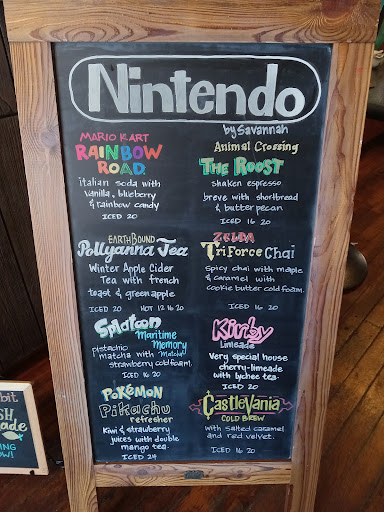 Nintendo
by Savannah
MARIO KART
RAINBOW
ROAD
italian soda with
vanilla, blueberry
& rainbow candy
ICED 20
Animal Crossing
THE ROOST
shaken espresso
breve with shortbread
& butter pecan
ICED 16 20
EARTHBOUND
Pollyanna Tea
Winter Apple Cider
Tea with french
toast & green apple
ICED 20 HOT 12 16 20
ZELDA
TriForce Chai
Spicy chai with maple
& caramel with
cookie butter cold foam.
ICED 16 20
Splatoon
Maritime
Memory
pistachio
matcha with
strawberry cold foam.
ICED 16 20
Kirby
limeade
Very special house
cherry-limeade
with lychee tea.
ICED 20
POKÉMON
Pikachu
refresher
Kiwi & strawberry
juices with double
mango tea.
ICED 24
CASTLEVANIA
COLD BREW
with salted caramel
and red velvet.
ICED 16 20